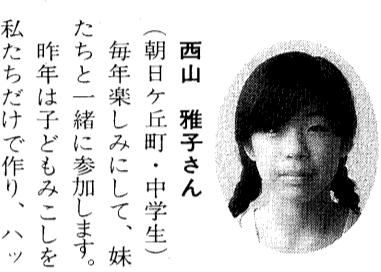 西山　雅子さん
（朝日ケ丘町・中学生）
毎年楽しみにして、妹
たちと一緒に参加します。
昨年は子どもみこしを
私たちだけで作り、ハッ